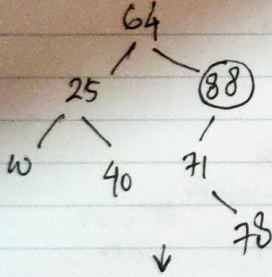 64
25 88
10 40 71
78
↓